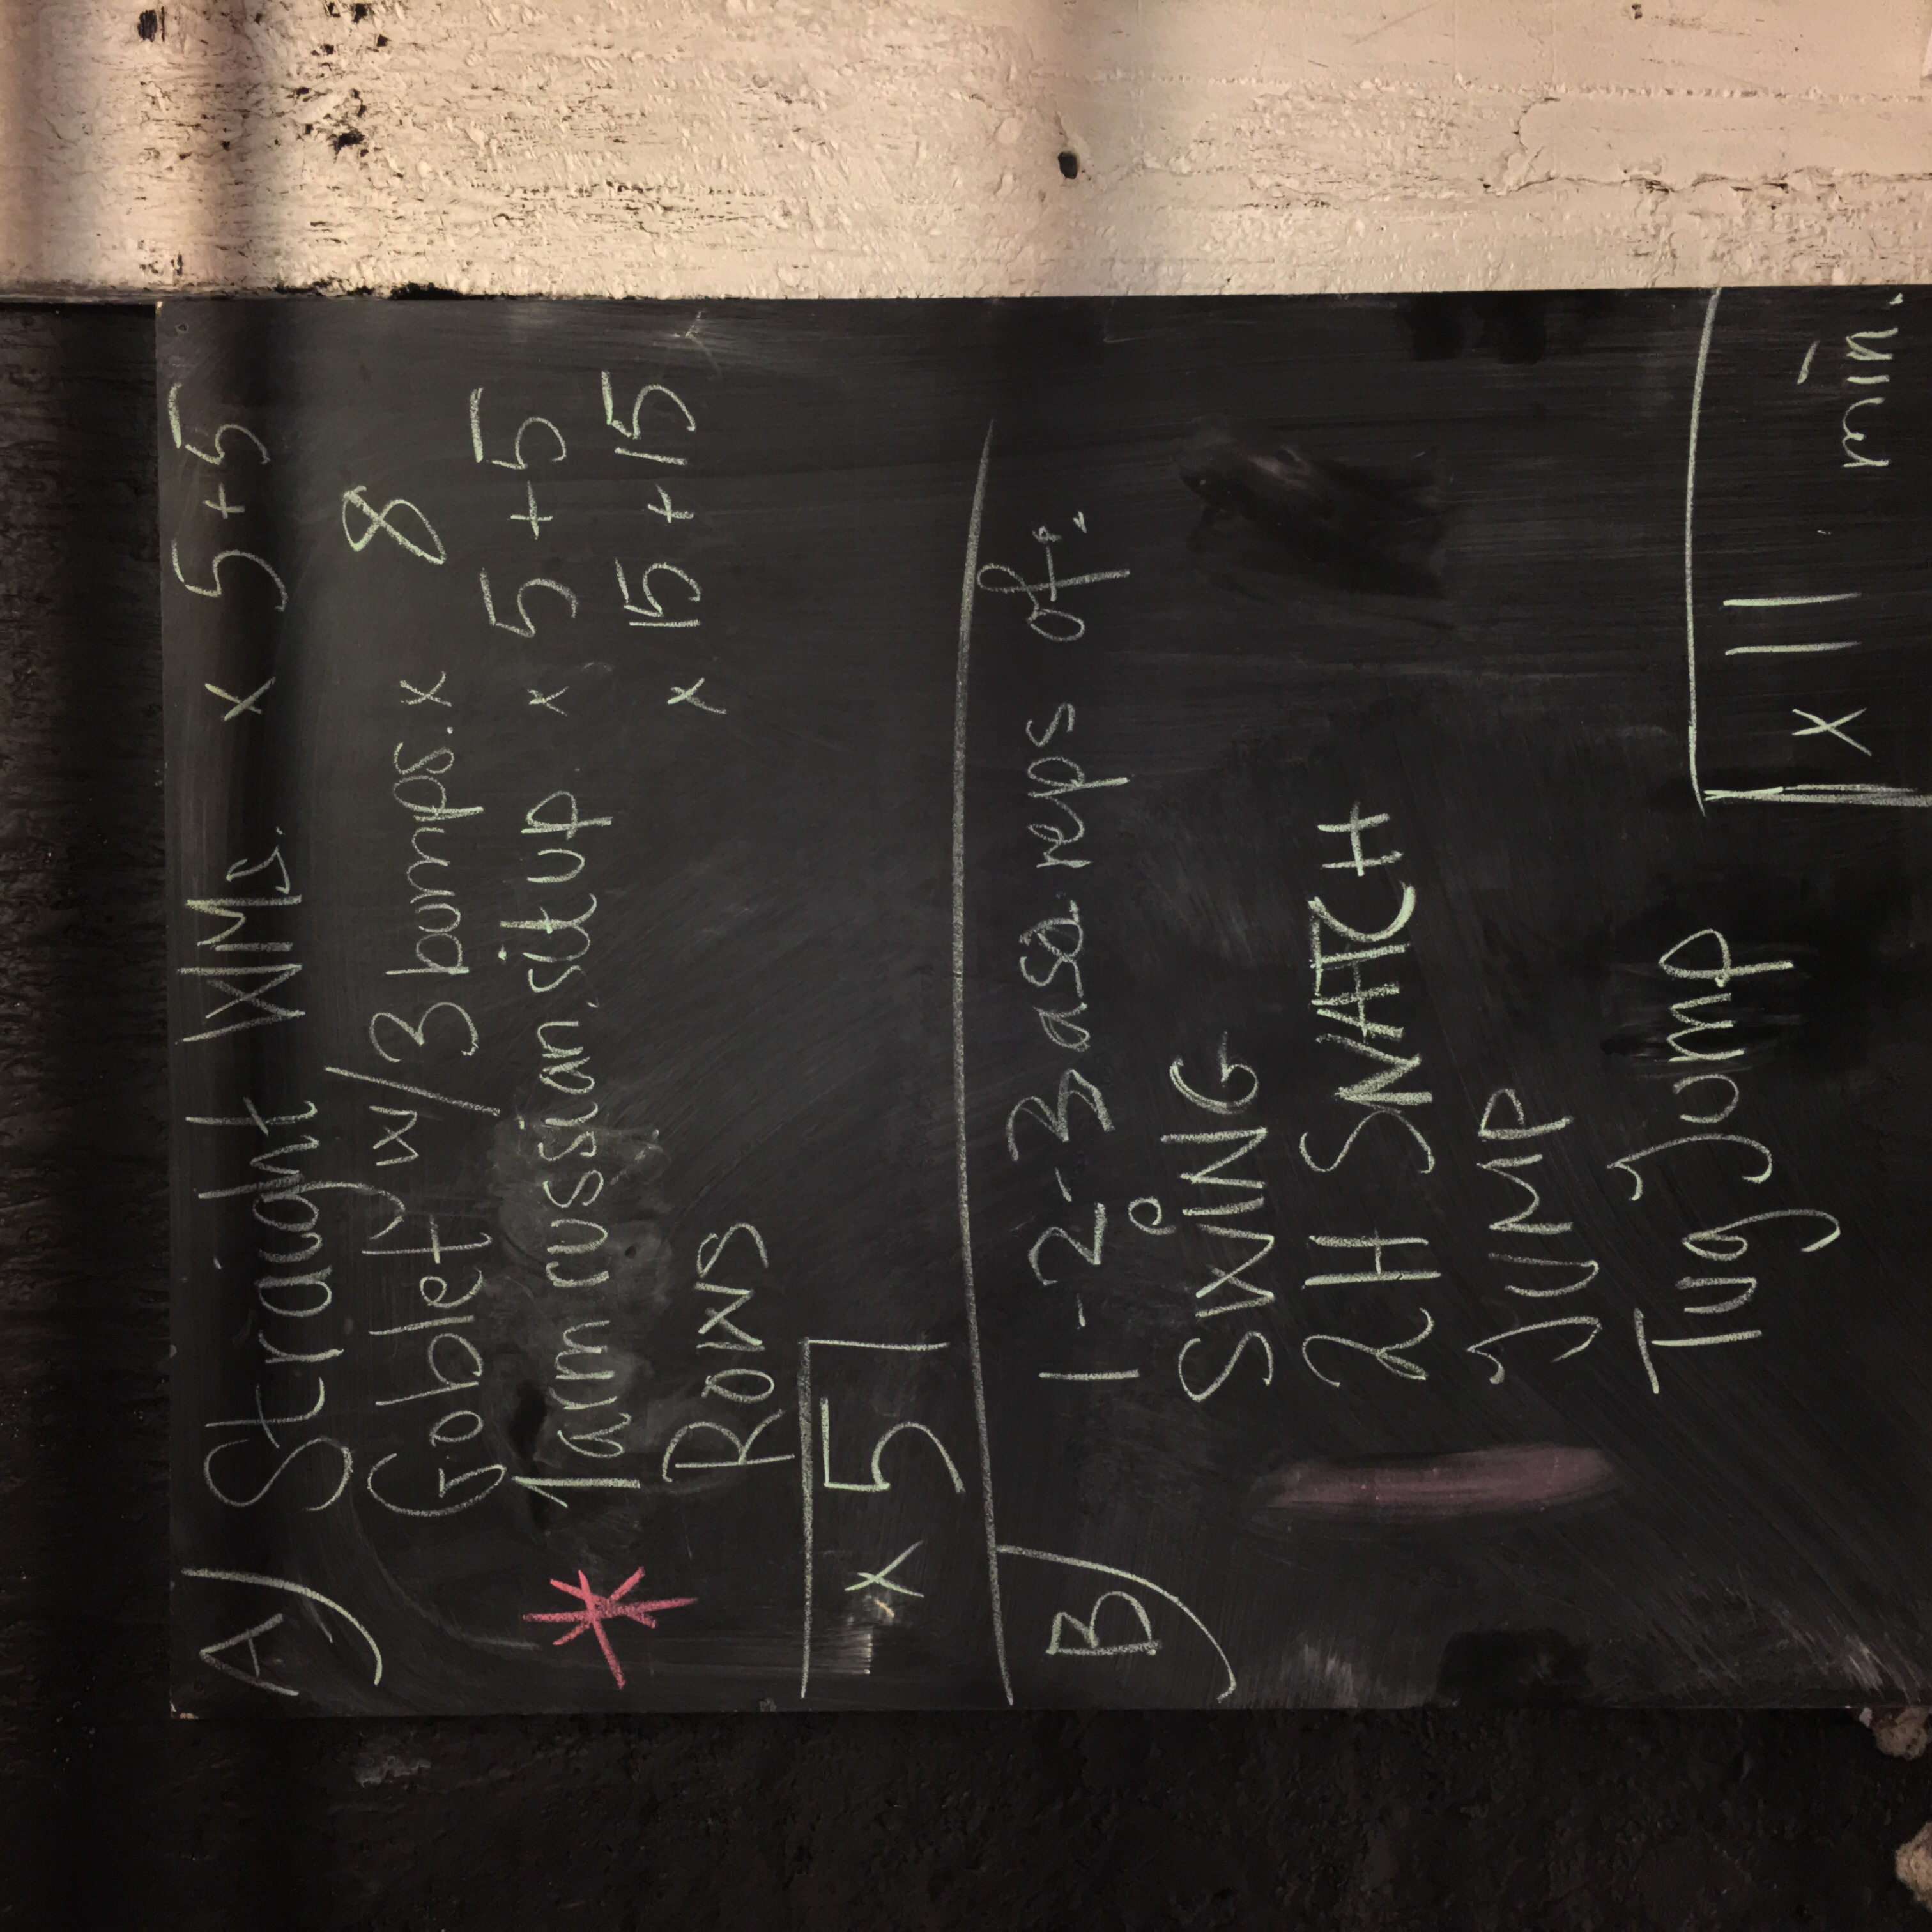 A) Straight WMs. x 5+5
Goblet w/3 bumps. x 8
* 1 arm russian.situp x 5+5
Rows x 15+15
x 5
B) 1-2-3 asa reps of:
SWING
2H SNATCH
JUMP
Tug Jump
x 11 min.